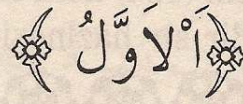 اَلْاَوَّلُ